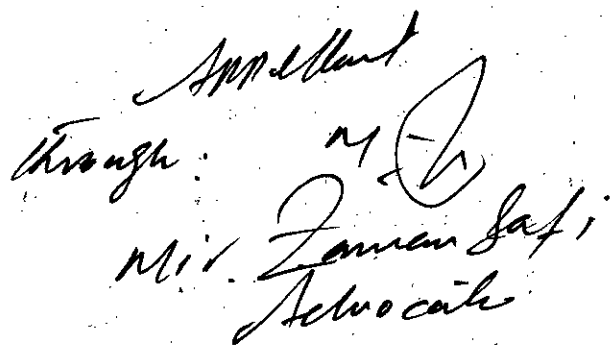 Appellant
through:
Mir. Zaman Safi
Advocate